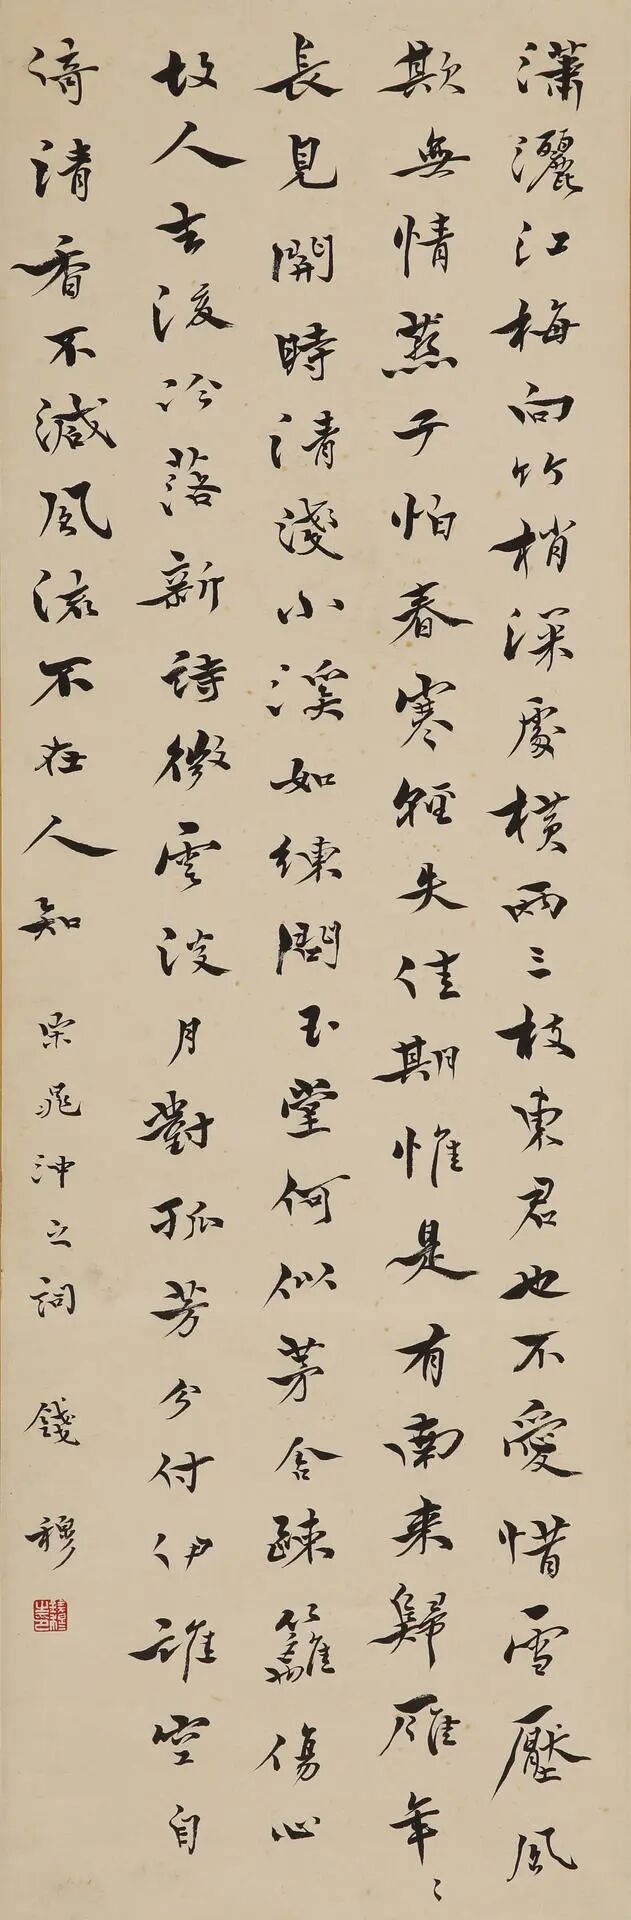 瀟灑江梅向竹梢深處橫兩三枝東君也不愛惜雪壓風
欺無情燕子怕春寒輕失佳期惟是有南來歸雁年〻
長見開時清淺小溪如練問玉堂何似茅舍疎籬傷心
故人去後冷落新詩微雲淡月對孤芳分付伊誰空自
倚清香不減風流不在人知
宋晁沖之詞 錢穆